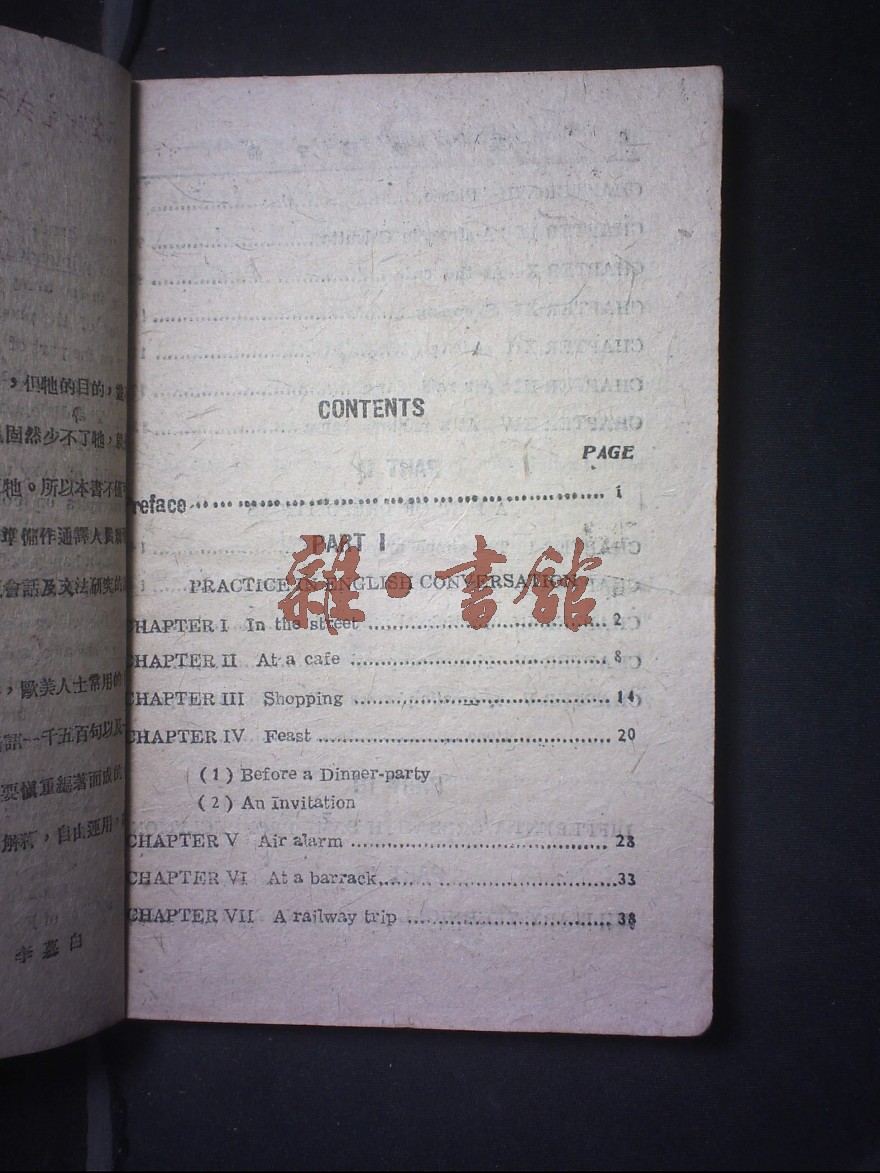 ，但牠的目的，
固然少不了牠，
牠。所以本書不
準備作通譯人員
會話及文法研究的
，歐美人士常用的
語一千五百句以及
要愼重編著而成的
解釋，自由運用，
李慕白
CONTENTS
PAGE
Preface.......... i
PART I
PRACTICE IN ENGLISH CONVERSATION
CHAPTER I In the street .......... 2
CHAPTER II At a cafe .......... 8
CHAPTER III Shopping .......... 14
CHAPTER IV Feast .......... 20
(1) Before a Dinner-party
(2) An Invitation
CHAPTER V Air alarm .......... 28
CHAPTER VI At a barrack.......... 33
CHAPTER VII A railway trip .......... 38
雜·書舘